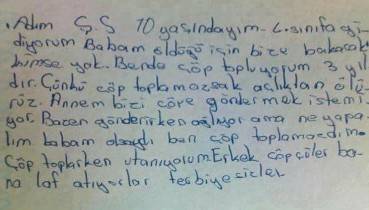 .Adım Ş.S 10 yaşındayım. 4. sınıfa gi-
diyorum Babam öldüğü için bize bakacak
kimse yok. Bende çöp topluyorum 3 yıl
dır. Çünkü çöp toplamazsak açlıktan ölü-
rüz. Annem bizi çöre göndermek istemi-
yor. Bazen gönderirken ağlıyor ama ne yapa-
lım babam olsaydı ben çöp toplamazdım.
Çöp toplarken utanıyorum Erkek çöpçüler ba-
na laf atıyorlar terbiyesizler